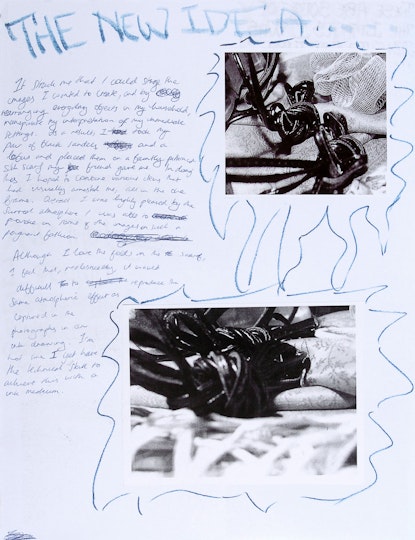 THE NEW IDEA...
It struck me that I could stage the
images I wanted to create, just by
rearranging everyday objects in my household,
my interpretation of my immediate
settings. As a result, I took my
pair of black sandals and a
and placed them on a
silk scarf my friend gave me. In doing
this, I had combined various ideas that
had visually me, all in the one
frame. I was highly pleased by the
surreal atmosphere I was able to
in some of the images in such a
poignant fashion
Although I love the folds in the scarf,
I feel that, realistically, it would
difficult to reproduce the
same atmospheric effect as
captured in the
photographs in an
ink drawing. I'm
not sure I have
the technical skill to
achieve this with a
medium.